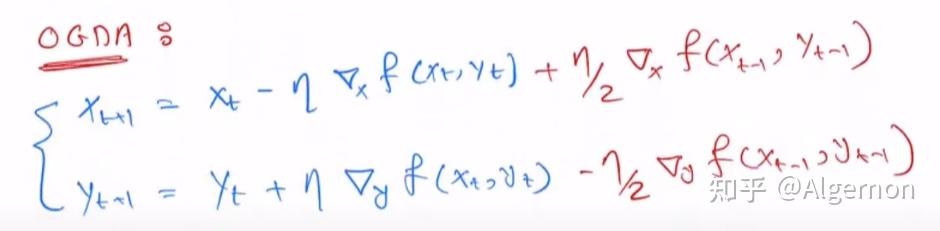 OGDA :
x_{t+1} = x_t - η ∇_x f(x_t, y_t) + η/2 ∇_x f(x_{t-1}, y_{t-1})
y_{t+1} = y_t + η ∇_y f(x_t, y_t) - η/2 ∇_y f(x_{t-1}, y_{t-1})
知乎 @Algemon